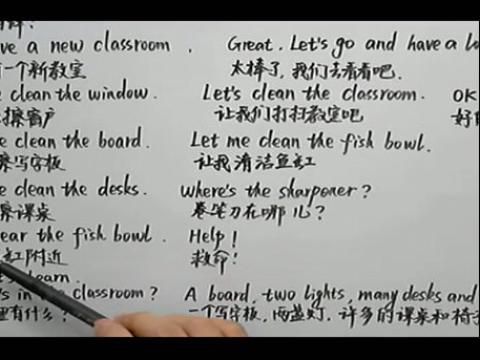 ve a new classroom . Great. Let's go and have a
一个新教室 太棒了, 我们去看看吧.
clean the window. Let's clean the classroom. OK
擦窗户 让我们打扫教室吧 好
e clean the board. Let me clean the fish bowl.
擦写字板 让我清洁鱼缸
e clean the desks. Where's the sharponer?
擦课桌 卷笔刀在哪儿?
ear the fish bowl. Help!
缸附近 救命!
learn.
s in classroom? A board, two lights, many desks and
里有什么? 一个写字板, 两盏灯, 许多的课桌和椅